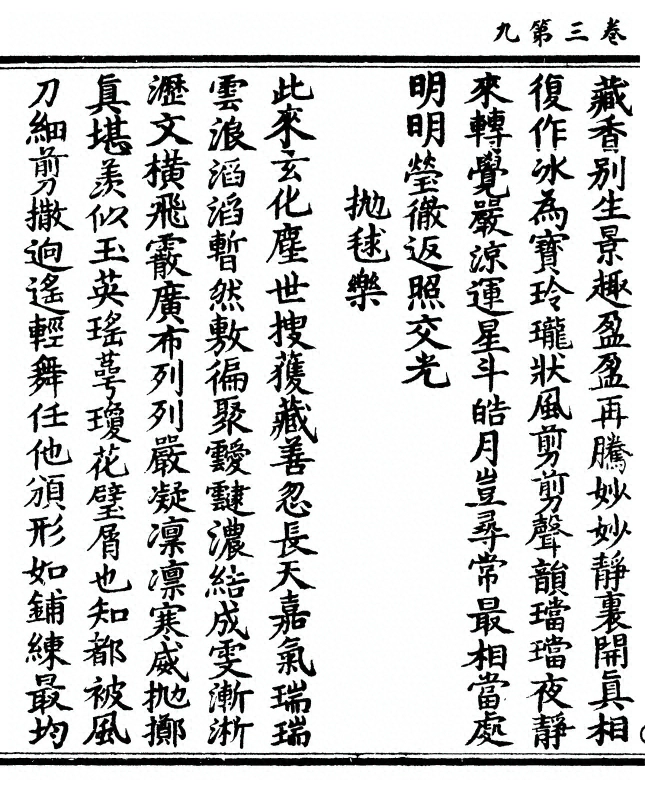 卷三第九
藏香别生景趣盈盈再騰妙妙靜裏開眞相
復作冰為寶玲瓏狀風剪剪聲韻璫璫夜靜
來轉覺嚴凉運星斗皓月豈尋常最相當處
明明瑩徹返照交光
拋毬樂
此來玄化塵世搜獲藏善忽長天嘉氣瑞瑞
雲浪滔滔暫然敷徧聚靉靆濃結成雯漸淅
瀝文橫飛霰廣布列列嚴凝凜凜寒威拋擲
眞堪羨似玉英瑤萼瓊花璧屑也知都被風
刀細剪撒逈遙輕舞任他頒形如鋪練最均